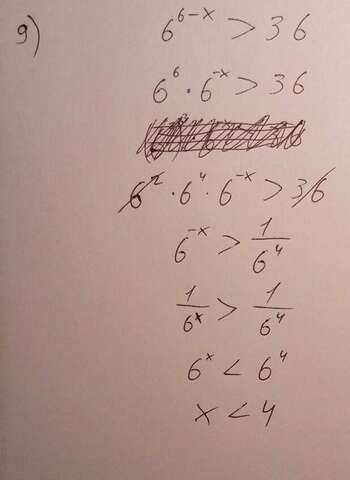 9) 6^{6-x} > 36
6^6 · 6^{-x} > 36
6^2 · 6^4 · 6^{-x} > 36
6^{-x} > 1/6^4
1/6^x > 1/6^4
6^x < 6^4
x < 4